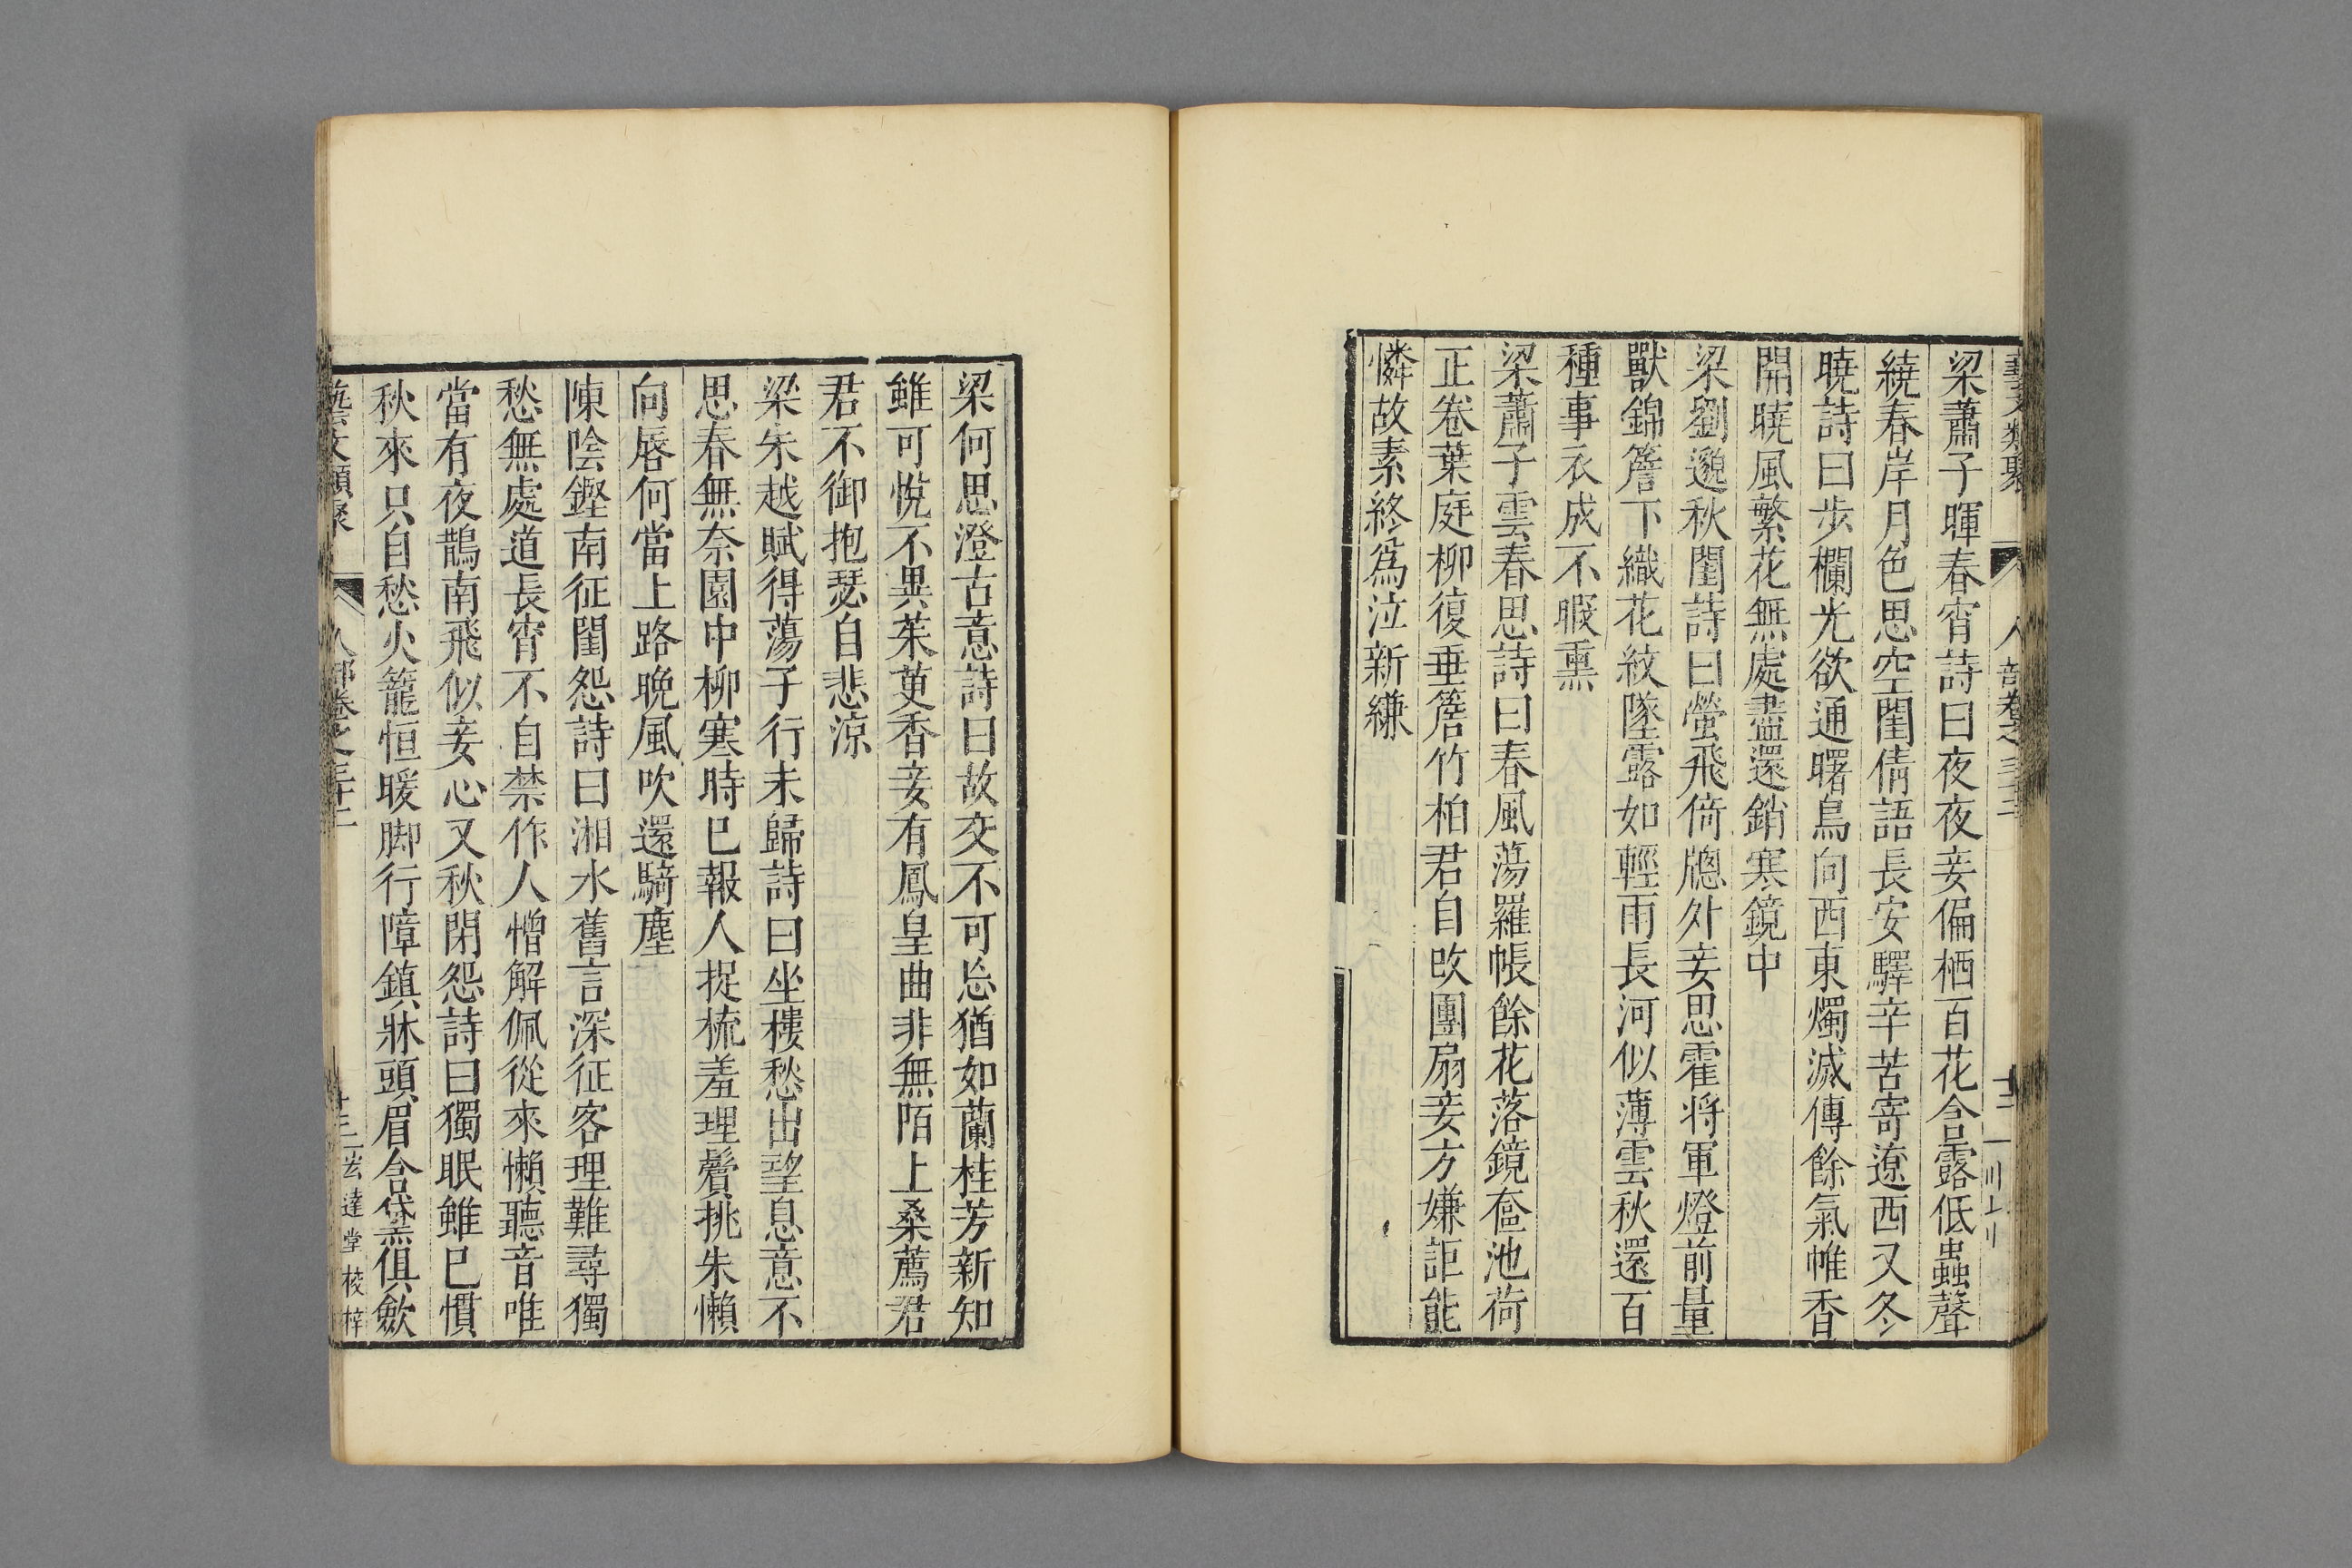 藝文類聚 人部卷之三十二 十二
梁蕭子暉春宵詩曰夜夜妾偏栖百花含露低蟲聲
繞春岸月色思空閨倩語長安驛辛苦寄遼西又冬
曉詩曰步欄光欲通曙鳥向西東燭滅傳餘氣帷香
開曉風繁花無處盡還銷寒鏡中
梁劉邈秋閨詩曰螢飛倚牕外妾思霍將軍燈前量
獸錦簷下織花紋墜露如輕雨長河似薄雲秋還百
種事衣成不暇熏
梁蕭子雲春思詩曰春風蕩羅帳餘花落鏡奩池荷
正卷葉庭柳復垂簷竹柏君自改團扇妾方嫌詎能
憐故素終爲泣新縑
梁何思澄古意詩曰故交不可忘猶如蘭桂芳新知
雖可悅不異茱萸香妾有鳳皇曲非無陌上桑薦君
君不御抱瑟自悲涼
梁朱越賦得蕩子行未歸詩曰坐樓愁出望息意不
思春無奈園中柳寒時已報人捉梳羞理鬢挑朱懶
向唇何當上路晚風吹還騎塵
陳陰鏗南征閨怨詩曰湘水舊言深征客理難尋獨
愁無處道長宵不自禁作人憎解佩從來懶聽音唯
當有夜鵲南飛似妾心又秋閑怨詩曰獨眠雖已慣
秋來只自愁火籠恒暖脚行障鎮牀頭眉含黛俱斂
藝文類聚 人部卷之三十二 十三 宏達堂校梓